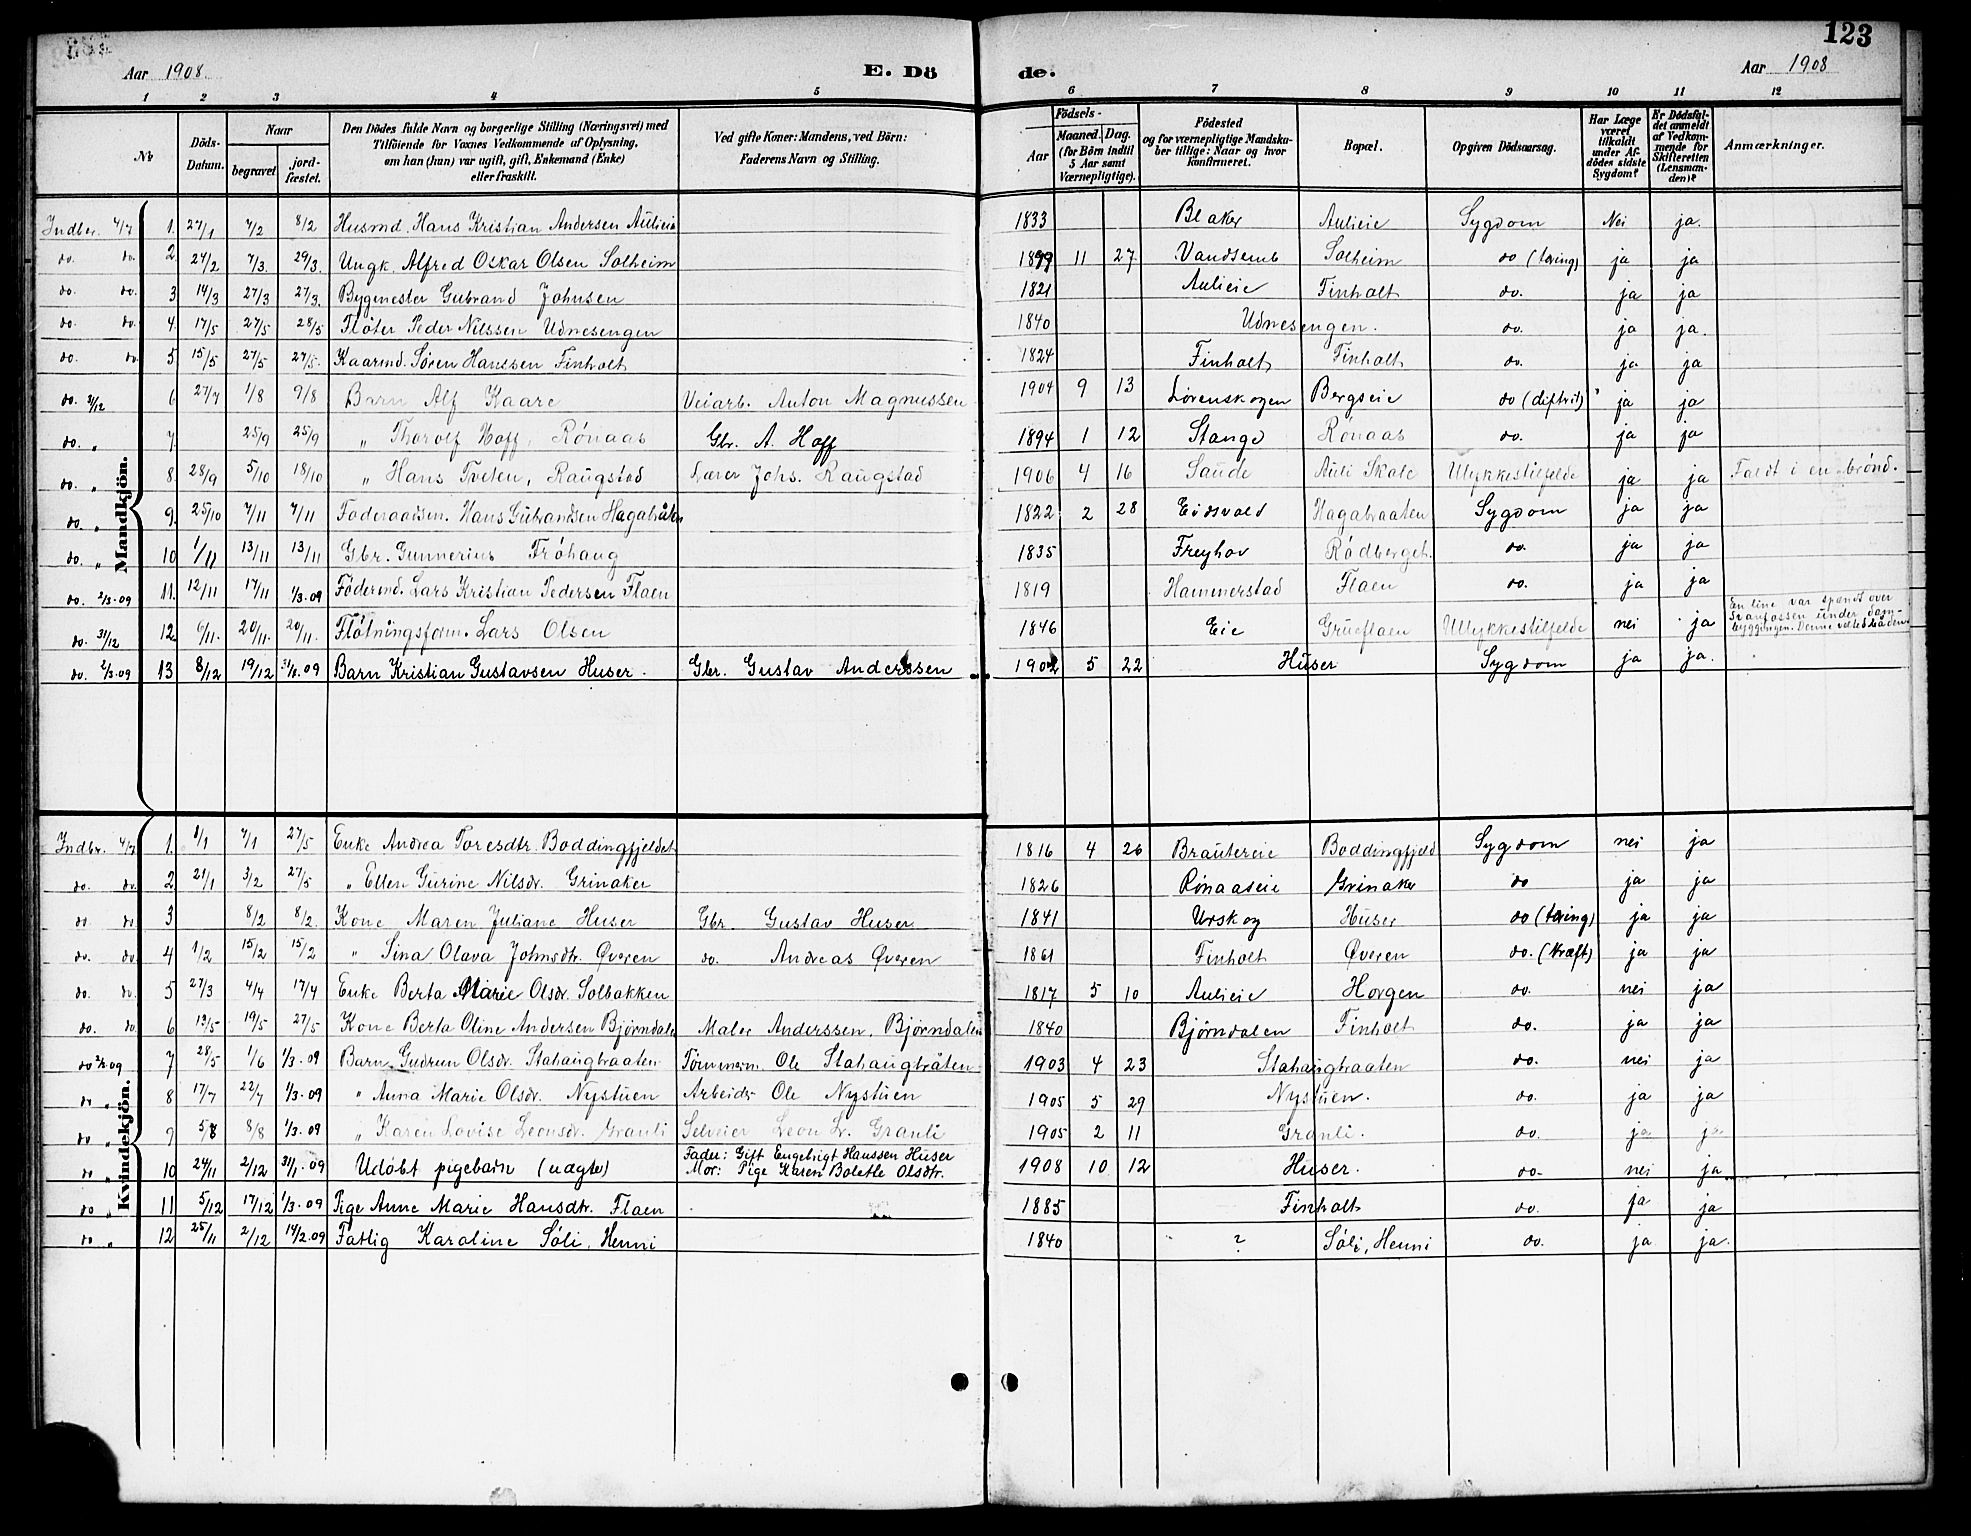 123
Aar 1908. E. Dö de. Aar 1908
1 2 3 4 5 6 7 8 9 10 11 12
No
Döds-Datum.
Naar
begravet
jord-fæstet.
Den Dödes fulde Navn og borgerlige Stilling (Næringsvei) med
Tilföiende for Voxnes Vedkommende af Oplysning,
om han (hun) var ugift, gift, Enkemand (Enke)
eller fraskilt.
Ved gifte Koner: Mandens, ved Börn:
Faderens Navn og Stilling.
Födsels-
Aar
Maaned. Dag.
(for Börn indtil
5 Aar samt
Værnepligtige).
Födested
og for værnepligtige Mandska-
ber tillige: Naar og hvor
konfirmeret.
Bopæl.
Opgiven Dödsaarsag.
Har Læge
været
tilkaldt
under Af-
dödes sidste
Sygdom?
Er Dödsfal-
det anmeldt
af Vedkom-
mende for
Skifteretten
(Lensman-
den)?
Anmærkninger.
Mandkjön.
Indber. 4/7 1. 27/1 7/2 8/2 Husmd. Hans Kristian Andersen Aulieie 1833 Blaker Aulieie Sygdom Nei ja.
do. do. 2. 24/2 7/3. 29/3. Ungk. Alfred Oskar Olsen Solheim 1899 11 27 Vandsemb Solheim do (tæring) ja ja
do. do. 3 14/3 27/3 27/3. Bygmester Gubrand Johnsen 1821 Aulieie Finholt do. ja ja
do. do. 4. 17/5 27/5 28/5 Fløter Peder Nilssen Udnesengen 1840 Udnesengen. do. ja ja.
do. do. 5 15/5 27/5 27/5. Kaarmd. Søren Hanssen Finholt 1824 Finholt Finholt do. ja ja
do. 3/12 6 27/7 1/8 9/8 Barn Alf Kaare Veiarb. Anton Magnussen 1904 9 13 Lørenskogen Bergseie do (diftrit) ja ja
do. „ 7. 25/9 25/9 „ Thorolf Hoff, Rónaas Gbr. A. Hoff 1894 1 12 Stange Rónaas do. ja ja
do. „ 8. 28/9 5/10 18/10 „ Hans Tveten, Raugstad Lærer Johs. Raugstad 1906 4 16 Saude Auli Skole Ulykkestilfelde ja ja Faldt i en brónd.
do. „ 9. 25/10 7/11 7/11 Foderaadsm. Hans Gubrandsen Hagabråten 1822 2 28 Eidsvold Hagabraaten Sygdom ja ja
do. „ 10 1/11 13/11 13/11 Gbr. Gunnerius Fróhaug 1835 Freyhov Rødberget. do. ja ja
do. 2/3-09 11. 12/11 17/11 1/3-09 Födermd. Lars Kristian Pedersen Flaen 1819 Hammerstad Flaen do. ja ja
do. 31/12 12. 6/11. 20/11. 20/11. Flötningsform. Lars Olsen 1846 Eie Grueflaen Ulykkestilfelde nei ja En line var spændt over
Svanfossen under dam-
byggingen. Denne velted baaden.
do. 2/3-09 13 8/12 19/12 31/1.09 Barn Kristian Gustavsen Huser. Gbr. Gustav Anderssen 1902 5 22 Huser Sygdom ja ja.
Kvindekjön.
Indbr. 4/7 1. 1/1 7/1 27/5 Enke Andrea Toresdtr. Boddingfjeldet 1816 4 26 Brautereie Boddingfjeld Sygdom nei ja
do. do. 2 21/1 3/2 27/5 „ Ellen Gurine Nilsdr. Grinaker 1826 Rónaaseie Grinaker do ja ja
do do 3 8/2 8/2. Kone Maren Juliane Huser Gbr. Gustav Huser 1841 Urskog Huser do (tæring) ja ja
do. do. 4 1/2 15/2 15/2 „ Sina Olava Johnsdtr. Øveren do. Andreas Øveren 1861 Finholt Øveren do. (kræft) ja ja
do. do. 5 27/3 4/4 17/4 Enke Berta Marie Olsdr. Solbakken 1817 5 10 Aulieie Horgen do. nei ja
do. do. 6 13/5 19/5 27/5 Kone Berta Oline Andersen Bjørndalen Maler Anderssen, Bjørndalen 1840 Bjørndalen Finholt do. ja ja
do 2/3.09 7 28/5 1/6 1/3-09 Barn Gudrun Olsdr. Stahaugbraaten Tømmerm. Ole Stahaugbråten 1903 4 23 Stahaugbraaten do. nei ja
do „ 8 17/7 22/7 1/3-09 „ Anna Marie Olsdr. Nystuen Arbeidr Ole Nystuen 1905 5 29 Nystuen. do. ja ja
do „ 9 5/8 8/8 1/3-09 „ Karen Lovise Leonsdr. Granli Selveier Leon Granli 1905 2 11 Granli. do. ja ja
do „ 10 24/11 2/12 31/1-09 Udøbt pigebarn (uægte) Fader: Gift Engebrigt Hanssen Huser
Mor: Pige Karen Bolette Olsdtr. 1908 10 12 Huser. do- nei ja
do „ 11 5/12 17/12 1/3-09 Pige Anne Marie Hansdtr. Flaen 1885 Finholt do. ja ja
do „ 12 25/11 2/12 14/2.09 Fattig Karoline Sóli, Henni 1840 ? Sóli, Henni do. ja ja.